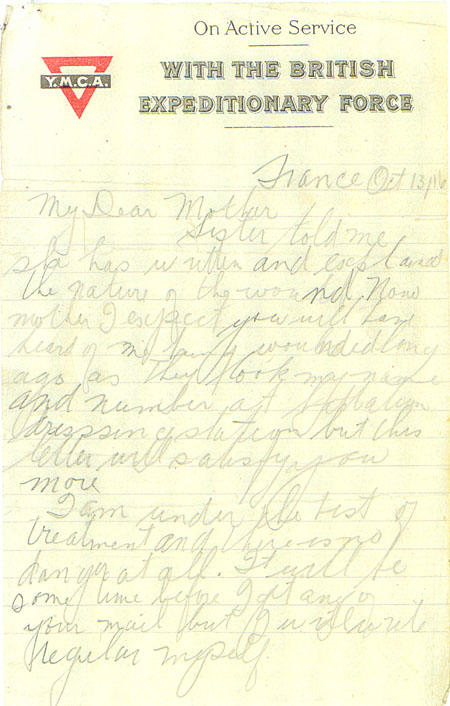 On Active Service
Y.M.C.A.
WITH THE BRITISH
EXPEDITIONARY FORCE
France Oct 13/16
My Dear Mother
Sister told me
she has written and explained
the nature of the wound. Now
mother I expect you will have
heard of me being wounded long
ago as they took my name
and number at
dressing station but this
letter will satisfy you
more
I am under the best of
treatment and there is no
danger at all. It will be
some time before I get any of
your mail but I will write
regular myself.